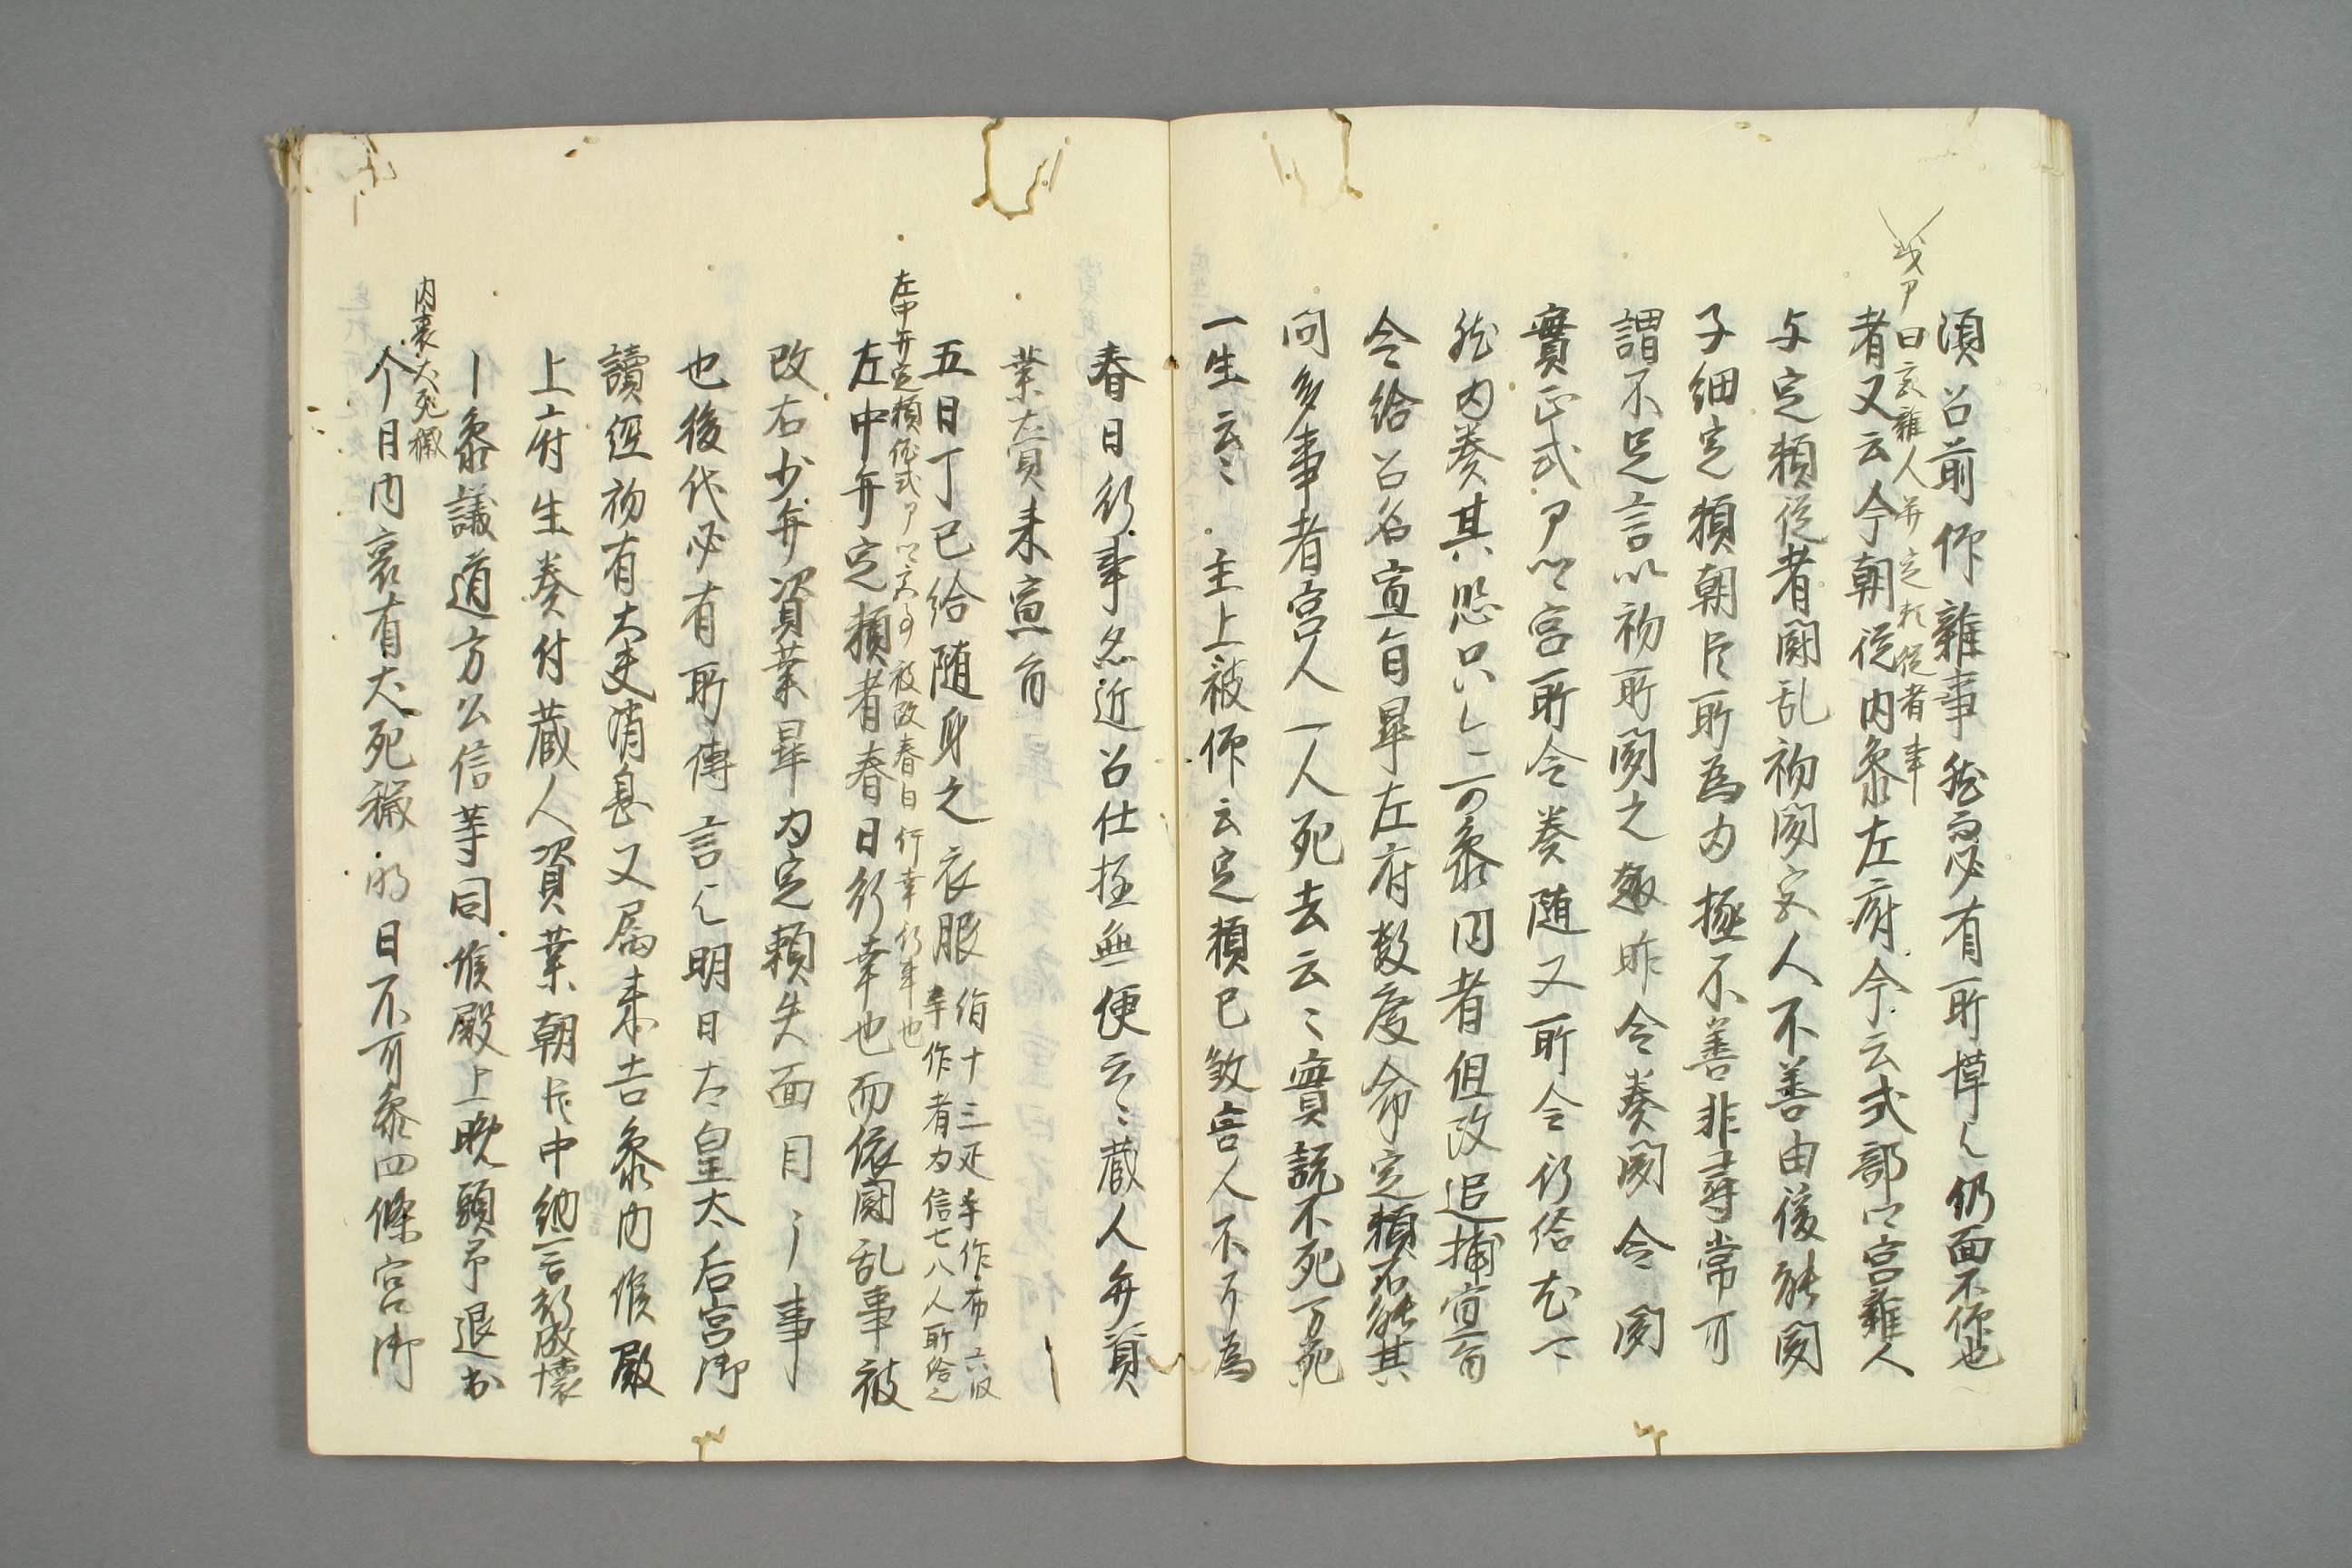 須召前仰雑事然而必有所憚々仍面不仰也
式ア曰宮雑人与定頼従者事
者又云今朝従内参左府今云式部卿宮雑人
与定頼従者闘乱初聞宮人不善由後能聞
子細定頼朝臣所為為極不善非尋常可
謂不足言以初所聞之趣昨令奏聞令聞
實正式ア卿宮所令奏随又所令行給也下
然内奏其恐只以可参内者但改追捕宣旨
令給召名宣旨畢左府数度命定頼不能其
問多事者宮人一人死去云々實説不死万死
一生云々主上被仰云定頼已敦害人不可為
春日行事忽近召仕極無便云々蔵人弁資
業来宣旨
五日丁巳給随身之衣服絹十三疋手作布六段
手作者為信七八人所給之
左中弁定頼依式ア卿宮事被改春日行幸行事也
左中弁定頼者春日行幸也而依闘乱事被
改右少弁資業畢為定頼失面目之事
也後代必有所傳言々明日太皇太后宮御
讀経初有大夫消息又属来告参内候殿
上府生奏付蔵人資業朝臣中納言行成懐
ー参議道方公信等同候殿上晩頭予退出
内裏犬死穢
今日内裏有犬死穢明日不可参四條宮御